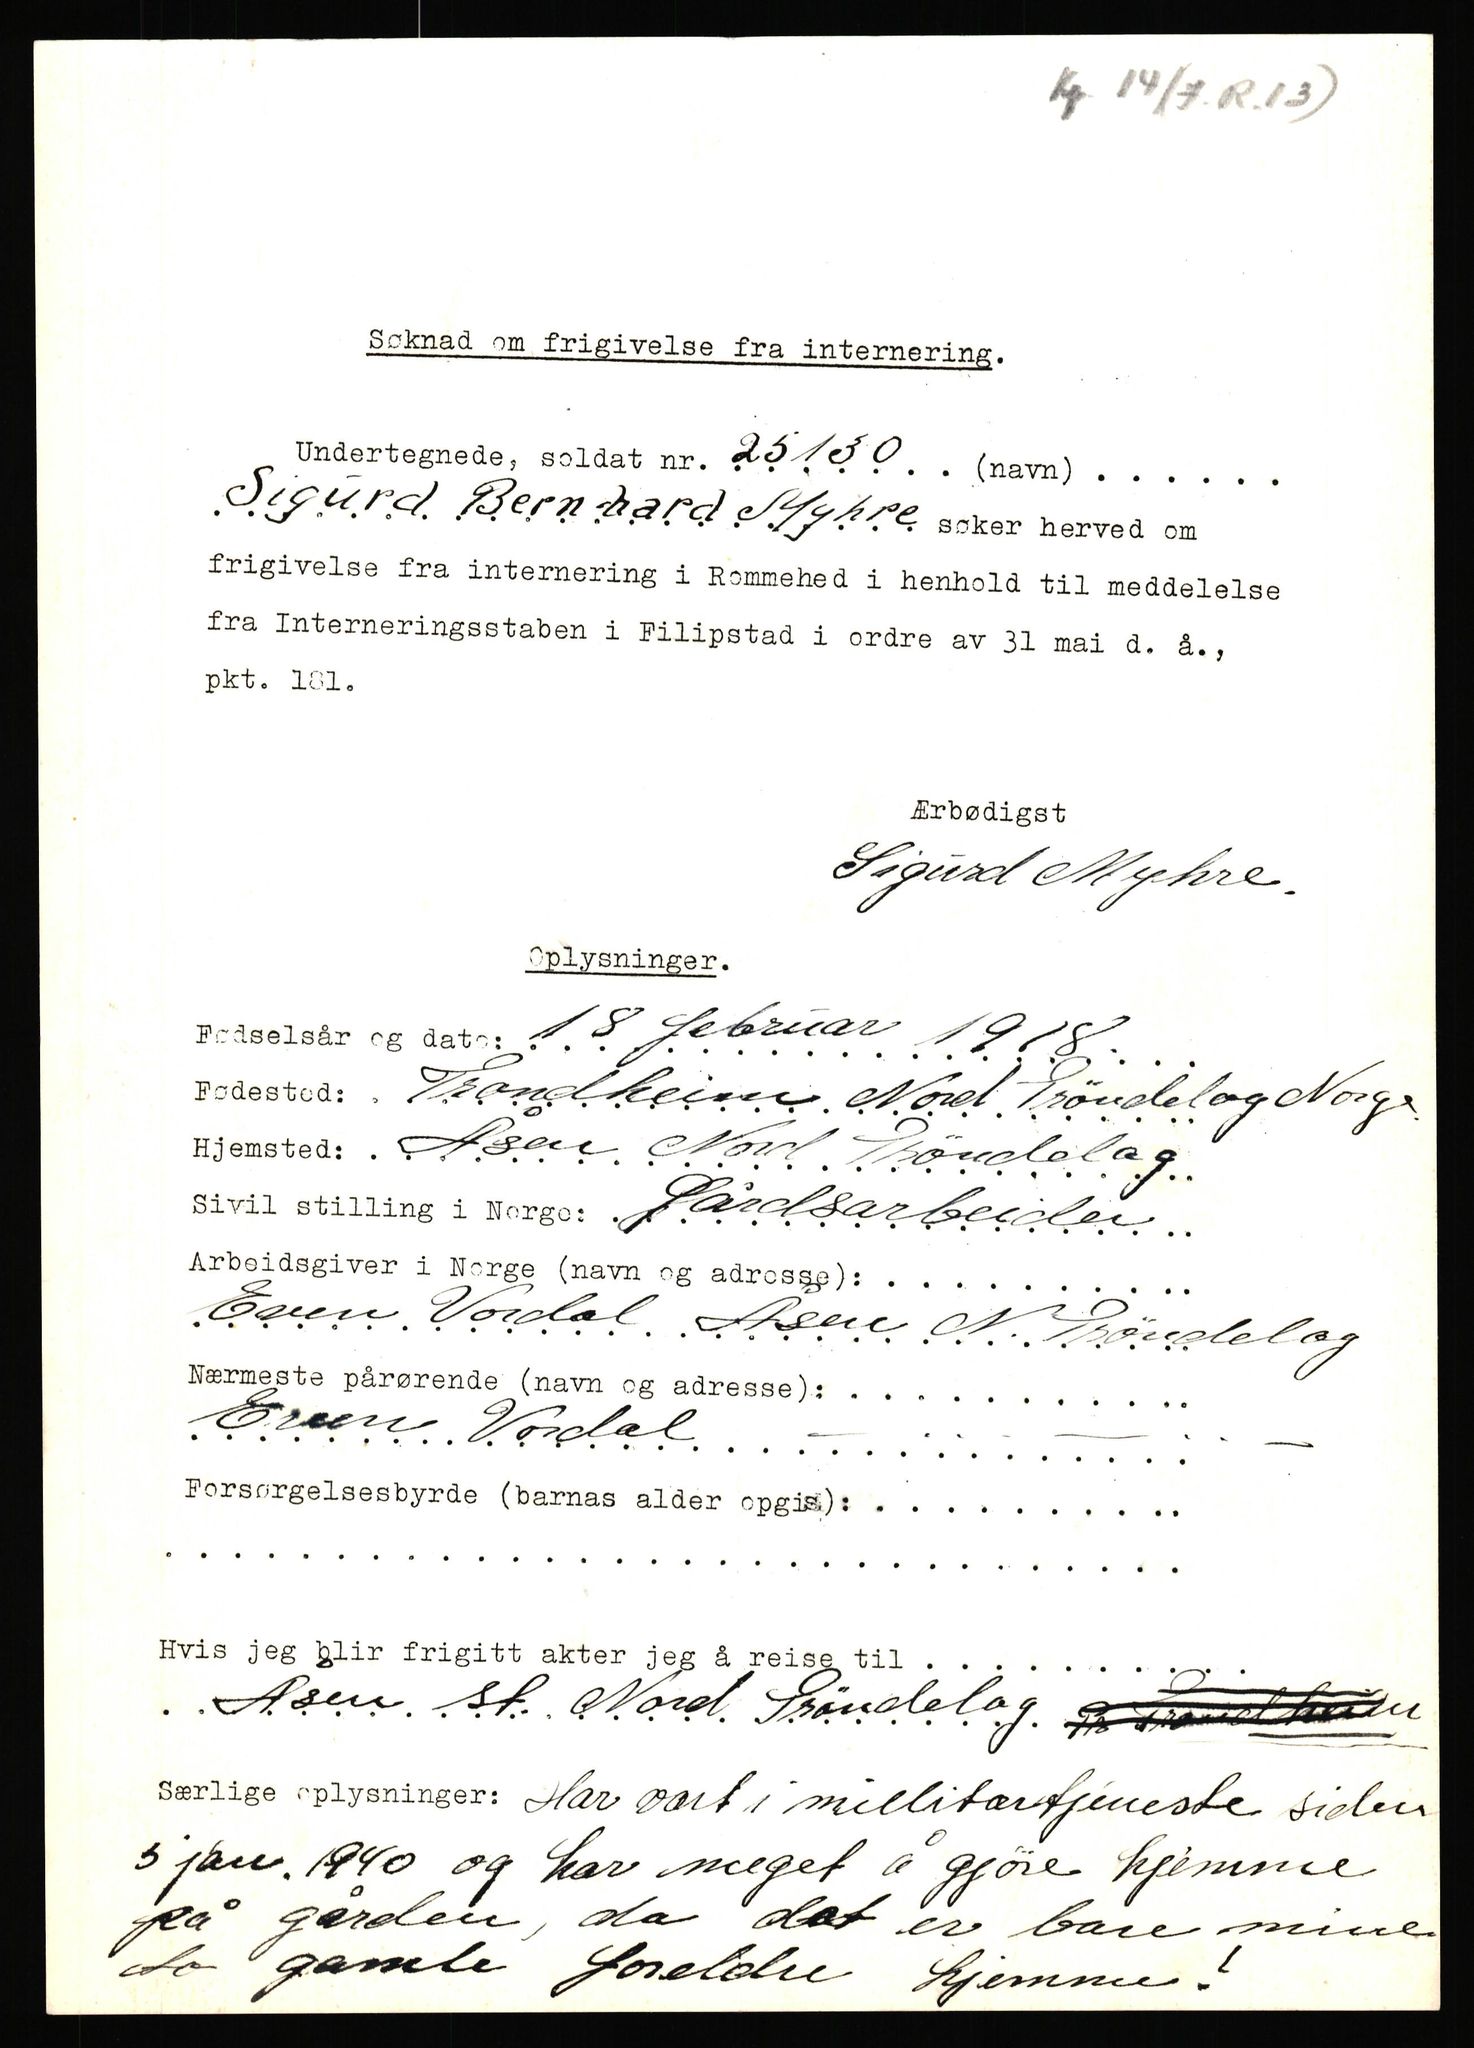 Kp 14 (7. R. 13)
Søknad om frigivelse fra internering.
Undertegnede, soldat nr. 25130 . . (navn) . . . . . .
Sigurd Bernhard Myhre søker herved om
frigivelse fra internering i Rommehed i henhold til meddelelse
fra Interneringsstaben i Filipstad i ordre av 31 mai d. å.,
pkt. 181.
Ærbødigst
Sigurd Myhre.
Oplysninger.
Fødselsår og dato: 18 februar 1918
Fødested: Trondheim Nord Tröndelag Norge
Hjemsted: Åsen Nord Tröndelag
Sivil stilling i Norge: Gårdsarbeider
Arbeidsgiver i Norge (navn og adresse): . . . . . . . . . . .
Even Vordal Åsen N. Tröndelag
Nærmeste pårørende (navn og adresse): . . . . . . . . . . . .
Even Vordal — — —
Forsørgelsesbyrde (barnas alder opgis): . . . . . . . . . . .
. . . . . . . . . . . . . . . . . . . . . . . . . . . . . .
Hvis jeg blir frigitt akter jeg å reise til . . . . . . . . . . .
Åsen st. Nord Tröndelag Pr Trondheim
Særlige oplysninger: Har vært i millitærtjeneste siden
5 jan. 1940 og har meget å gjöre hjemme
på gården, da det er bare mine
to gamle foreldre hjemme!